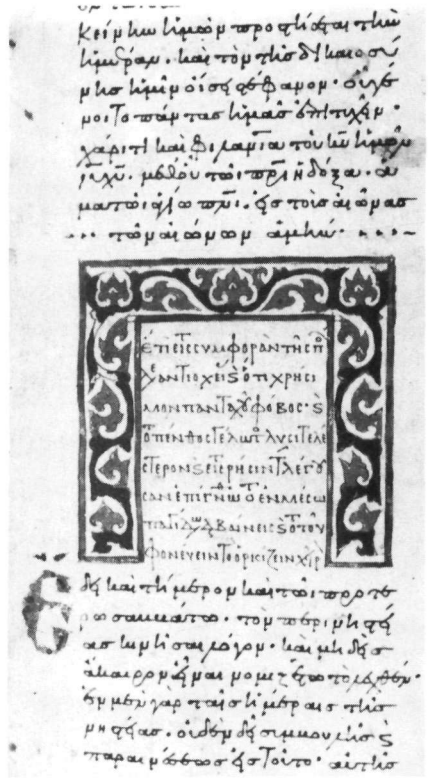 κει μην ἡμῶν προτίθεται τὴν
ἡμέραν· καὶ τὸν τῆς δικαιοσύ
νης ἡμῖν οἴσει στέφανον· οὗ γέ
νοιτο πάντας ἡμᾶς ἐπιτυχεῖν·
χάριτι καὶ φιλανία τοῦ κυ ἡμῶν
ιυ χυ· μεθ οὗ τῶι πρι ἡ δόξα· ἅ
μα τῶι ἁγίω πνι· εἰς τοὺς αἰῶνας
τῶν αἰώνων ἀμήν·
ἔτι εἰς τ συμφορὰν τῆς π
ἀντιοχείς ϗ ὅτι χρήσι
μον πανταχοῦ φόβος· ϗ
ὅτ πένθος γέλωτ λυσιτελέ
στερον ϗ εἰς τ ῥῆσιν τ λέγου
σαν ἐπίγνωθ ὅτ ἐν μέσω
παγίδων διαβαίνεις ϗ ὅτ τοῦ
φονεύειν τὸ ὁρκίζειν χεῖρ
Ἔδει καὶ τήμερον καὶ τῶι προτέ
ρω σαββάτω· τὸν περὶ νηστεί
ας κινῆσαι λόγον· καὶ μηδεὶς
ἄκαιρον εἶναι νομιζέτω τὸ λεχθέν·
ἐν μὲν γὰρ ταῖς ἡμέραις τῆς
νηστείας· οὐδὲν δεῖ συμβουλῆς ϗ
παραινέσεως εἰς τοῦτο· αὐτῆς